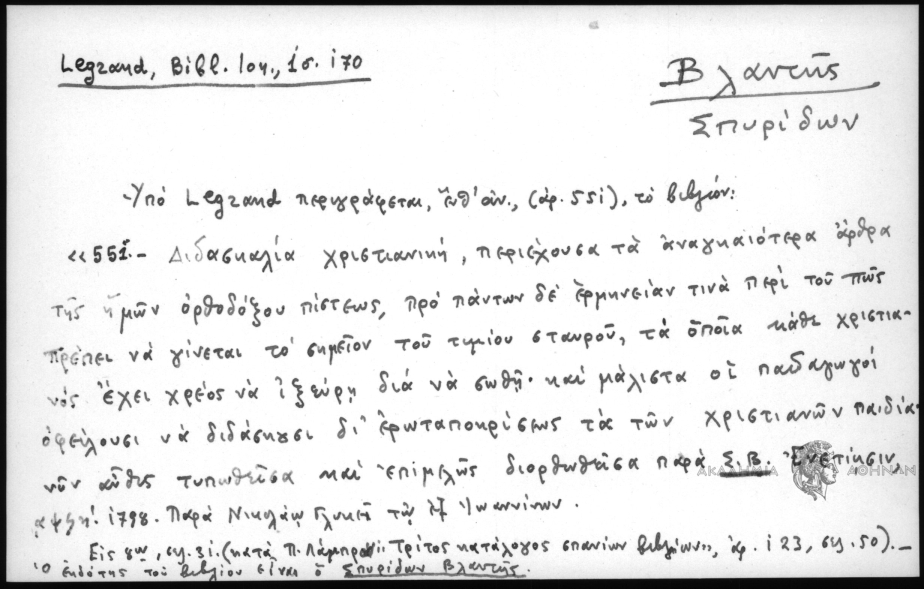 Legrand, Bibl. Ion., 1σ. 170
Βλαντῆς
Σπυρίδων
Ὑπό Legrand περιγράφεται, ἔνθ' ἀν., (ἀρ. 551), τό βιβλίον:
«551.- Διδασκαλία χριστιανική, περιέχουσα τὰ ἀναγκαιότερα ἄρθρα
τῆς ἡμῶν ὀρθοδόξου πίστεως, πρό πάντων δέ ἑρμηνείαν τινὰ περί τοῦ πῶς
πρέπει νὰ γίνεται τό σημεῖον τοῦ τιμίου σταυροῦ, τὰ ὁποῖα κάθε χριστια-
νός ἔχει χρέος νὰ ἰξεύρῃ διά νὰ σωθῇ· καί μάλιστα οἱ παιδαγωγοί
ὀφείλουσι νὰ διδάσκωσι δι' ἐρωταποκρίσεως τὰ τῶν χριστιανῶν παιδία·
νῦν αὖθις τυπωθεῖσα καί ἐπιμελῶς διορθωθεῖσα παρά Σ.Β. Ἐνετίησιν,
αψϟη'. 1798. Παρά Νικολάῳ Γλυκεῖ τῷ ἐξ Ἰωαννίνων.
Εἰς 8ον, σελ. 31. (κατά Π. Λάμπρου "Τρίτος κατάλογος σπανίων βιβλίων", ἀρ. 123, σελ. 50).—
Ὁ ἐκδότης τοῦ βιβλίου εἶναι ὁ Σπυρίδων Βλαντῆς.
ΑΚΑΔΗΜΙΑ ΑΘΗΝΩΝ